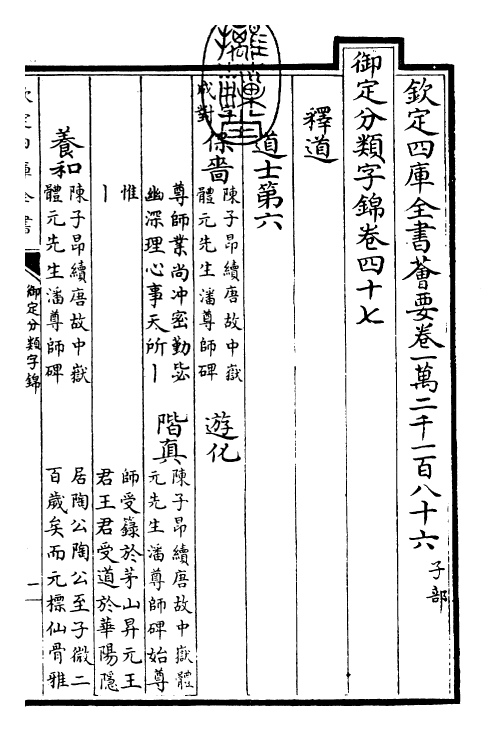 欽定四庫全書薈要卷一萬二千一百八十六 子部
御定分類字錦卷四十七
釋道
道士第六
成對
葆嗇 陳子昂續唐故中嶽
體元先生潘尊師碑
遊化
尊師業尚沖密勤毖
幽深理心事天所丨
階真 陳子昂續唐故中嶽體
元先生潘尊師碑始尊
惟
丨
師受籙於茅山昇元王
君王君受道於華陽隱
養和 陳子昂續唐故中嶽
體元先生潘尊師碑
居陶公陶公至子微二
百歲矣而元標仙骨雅
欽定四庫全書
御定分類字錦
一